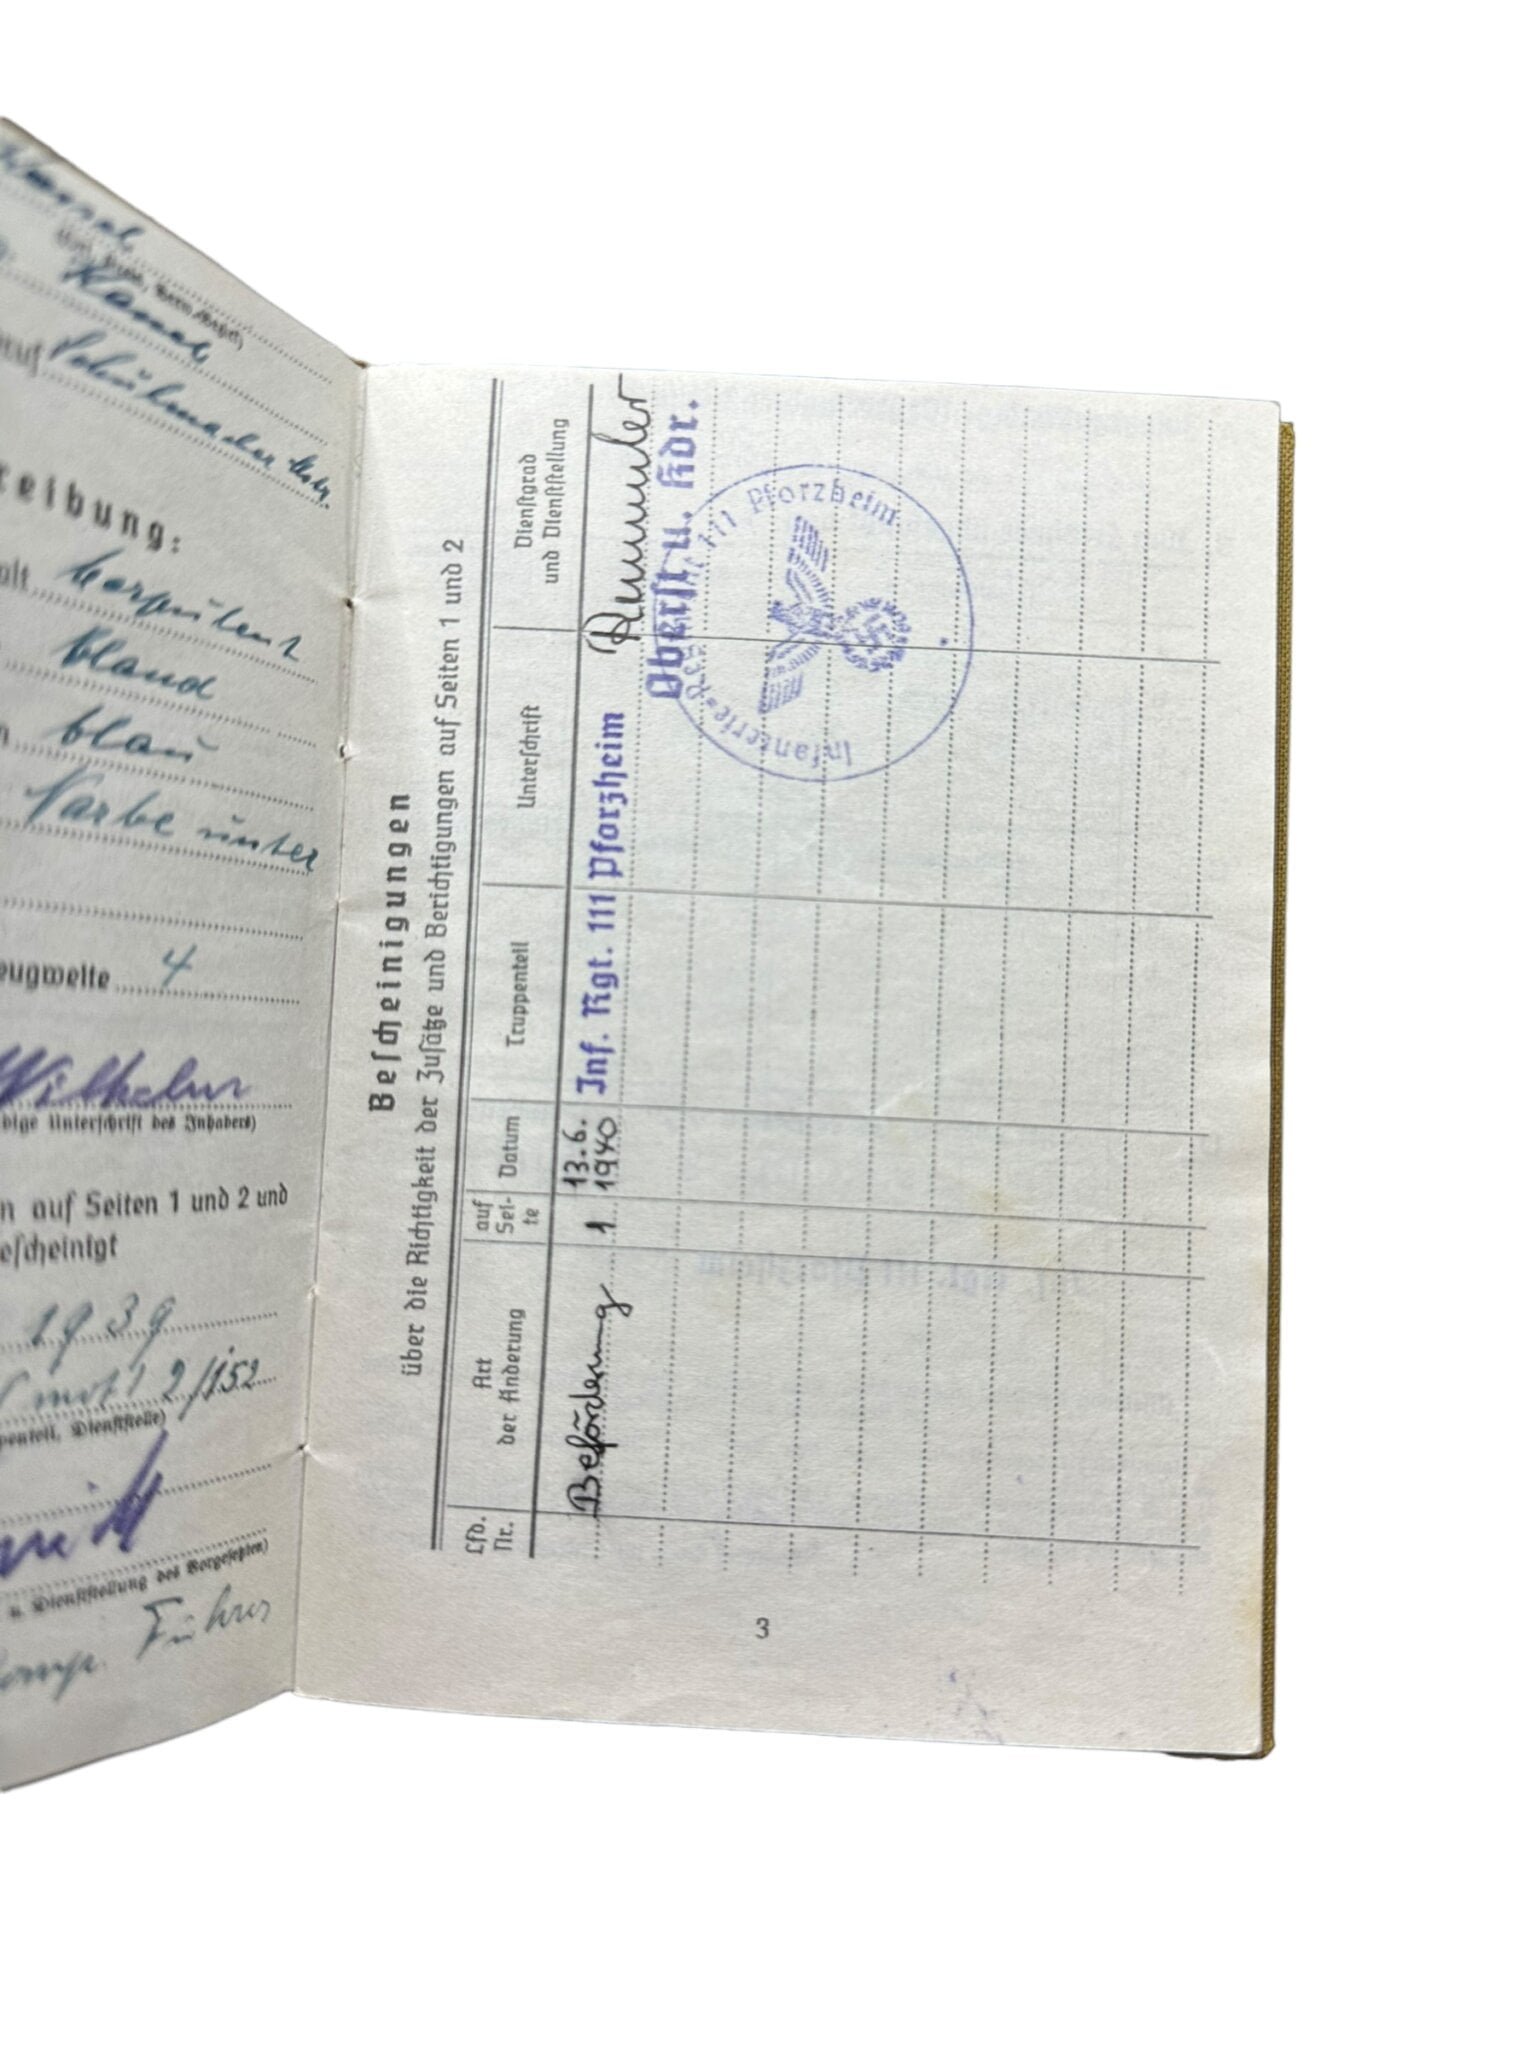 Klaus
Schuhmacher
reibung:
blond
blau
Narbe unter
eugweite 4
Wilhelm
dige Unterschrift des Inhabers)
n auf Seiten 1 und 2 und
escheinigt
1939
(mot) 2/152
penteil, Dienststelle)
u. Dienststellung des Vorgesetzten)
Komp. Führer
Bescheinigungen
über die Richtigkeit der Zusätze und Berichtigungen auf Seiten 1 und 2
Lfd. Nr.
Art der Änderung
auf Sei- te
Datum
Truppenteil
Unterschrift
Dienstgrad und Dienststellung
Beförderung 1 13.6. 1940 Inf. Rgt. 111 Pforzheim
Oberst u. Kdr.
Infanterie=Regiment 111 Pforzheim
3